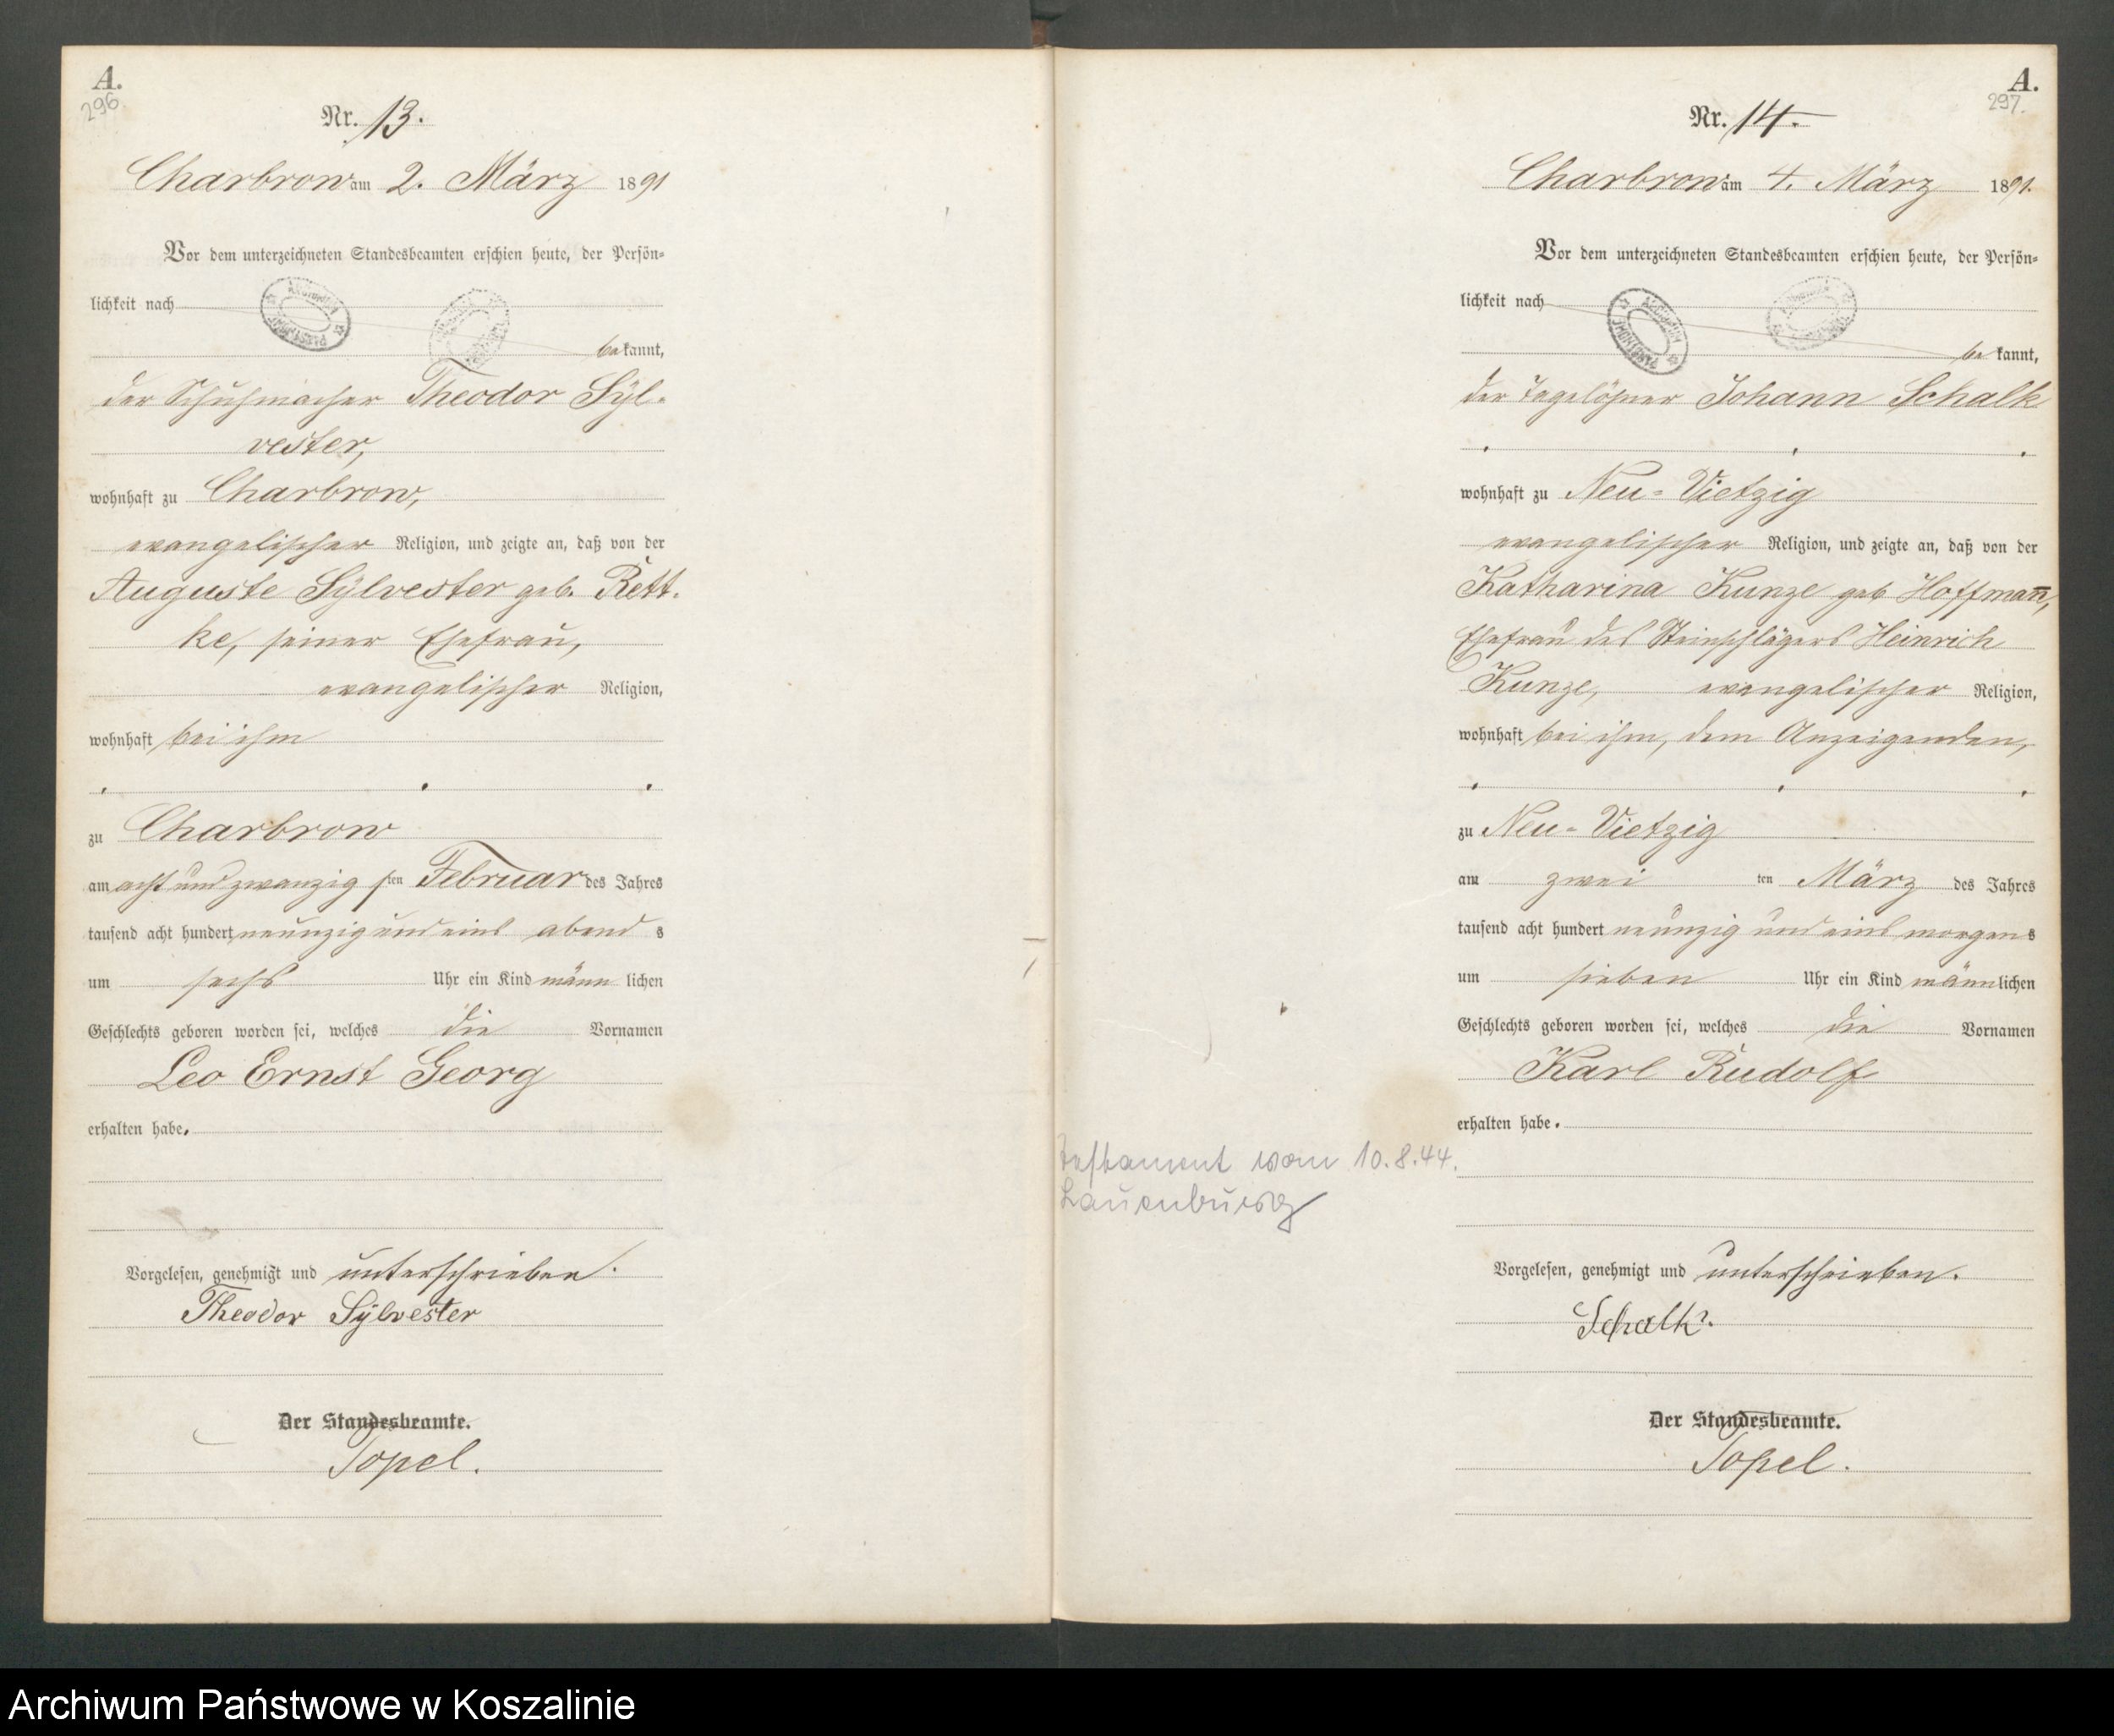 A.
296.
Nr. 13.
Charbrow am 2. März 1891
Vor dem unterzeichneten Standesbeamten erschien heute, der Persön-
lichkeit nach
bekannt,
der Schuhmacher Theodor Syl-
vester,
wohnhaft zu Charbrow,
evangelischer Religion, und zeigte an, daß von der
Auguste Sylvester geb. Rett-
ke, seiner Ehefrau,
evangelischer Religion,
wohnhaft bei ihm
zu Charbrow
am acht und zwanzigsten Februar des Jahres
tausend acht hundert neunzig und eins abends
um sechs Uhr ein Kind männlichen
Geschlechts geboren worden sei, welches die Vornamen
Leo Ernst Georg
erhalten habe.
Vorgelesen, genehmigt und unterschrieben.
Theodor Sylvester
Der Standesbeamte.
Topel.
A.
297.
Nr. 14.
Charbrow am 4. März 1891.
Vor dem unterzeichneten Standesbeamten erschien heute, der Persön-
lichkeit nach
bekannt,
der Tagelöhner Johann Schalk
wohnhaft zu Neu-Vietzig
evangelischer Religion, und zeigte an, daß von der
Katharina Kunze geb Hoffman̄,
Ehefrau des Steinschlägers Heinrich
Kunze, evangelischer Religion,
wohnhaft bei ihm, dem Anzeigenden,
zu Neu-Vietzig
am zweiten März des Jahres
tausend acht hundert neunzig und eins morgens
um sieben Uhr ein Kind männlichen
Geschlechts geboren worden sei, welches die Vornamen
Karl Rudolf
erhalten habe.
Testament vom 10.8.44.
Lauenburg
Vorgelesen, genehmigt und unterschrieben.
Schalk.
Der Standesbeamte.
Topel.
Archiwum Państwowe w Koszalinie